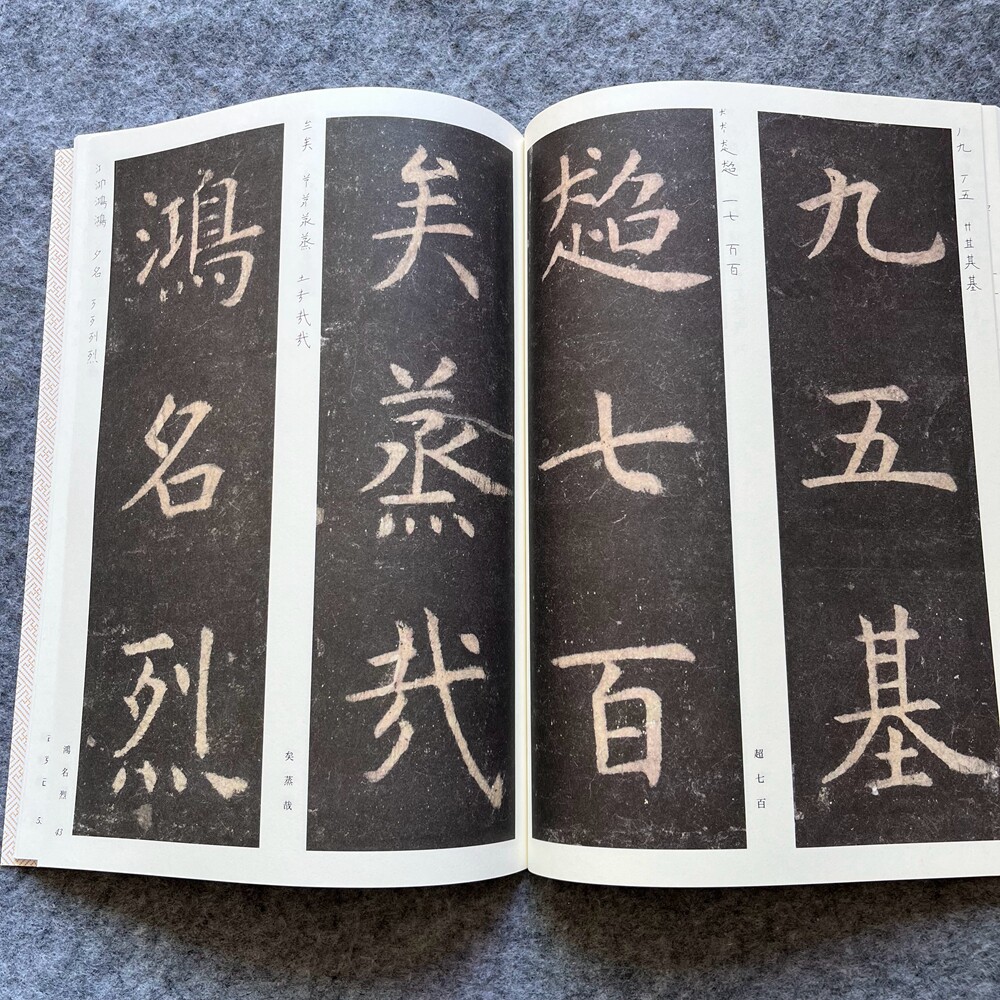 九五基
超七百
超七百
矣蒸哉
矣蒸哉
鴻名烈
鴻名烈
43